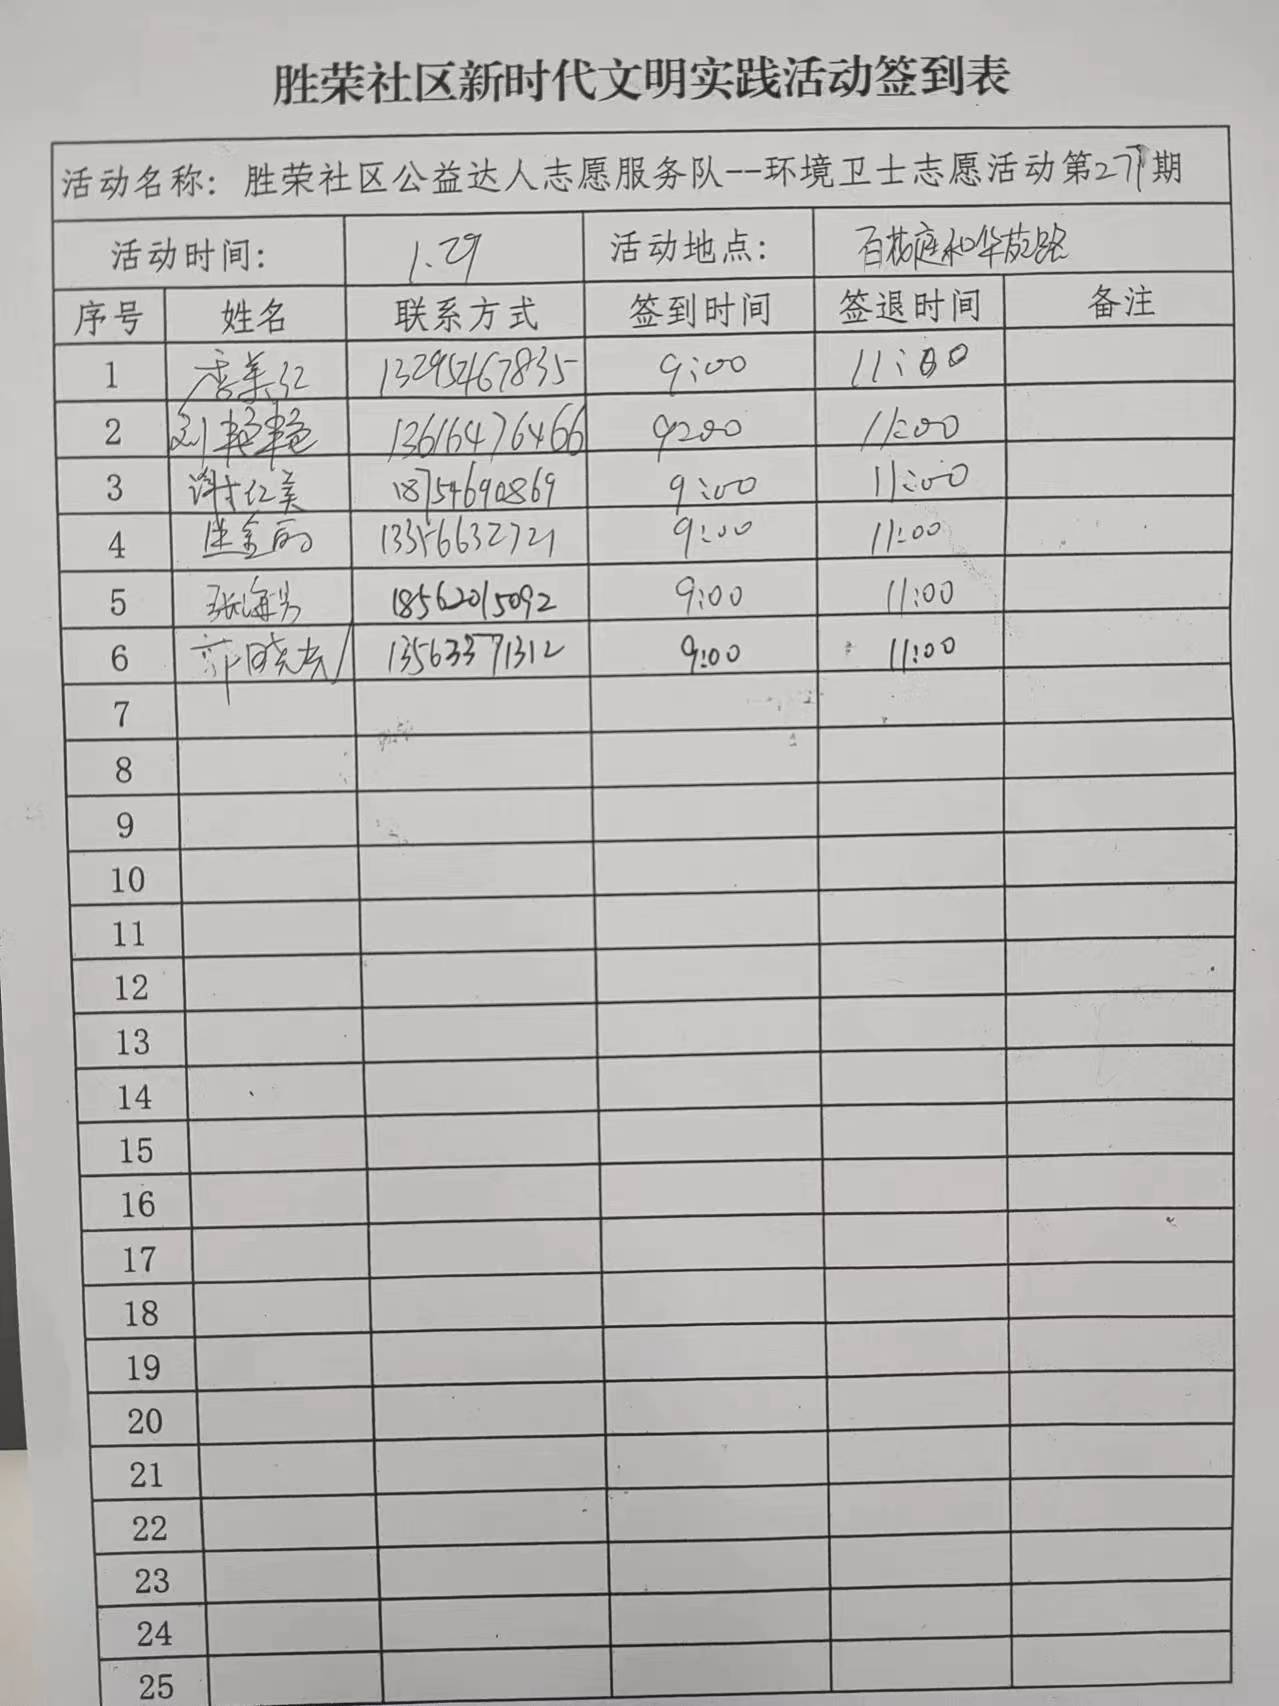 胜荣社区新时代文明实践活动签到表
活动名称：胜荣社区公益达人志愿服务队--环境卫士志愿活动第27期
活动时间： 1.29 活动地点： 百花庭和华苑路
序号 姓名 联系方式 签到时间 签退时间 备注
1 李美红 13295467835 9:00 11:00
2 刘艳艳 13616476466 9:00 11:00
3 谢红美 18754690869 9:00 11:00
4 金丽 13356632721 9:00 11:00
5 张海男 18562015092 9:00 11:00
6 郭晓 13563371312 9:00 11:00
7
8
9
10
11
12
13
14
15
16
17
18
19
20
21
22
23
24
25